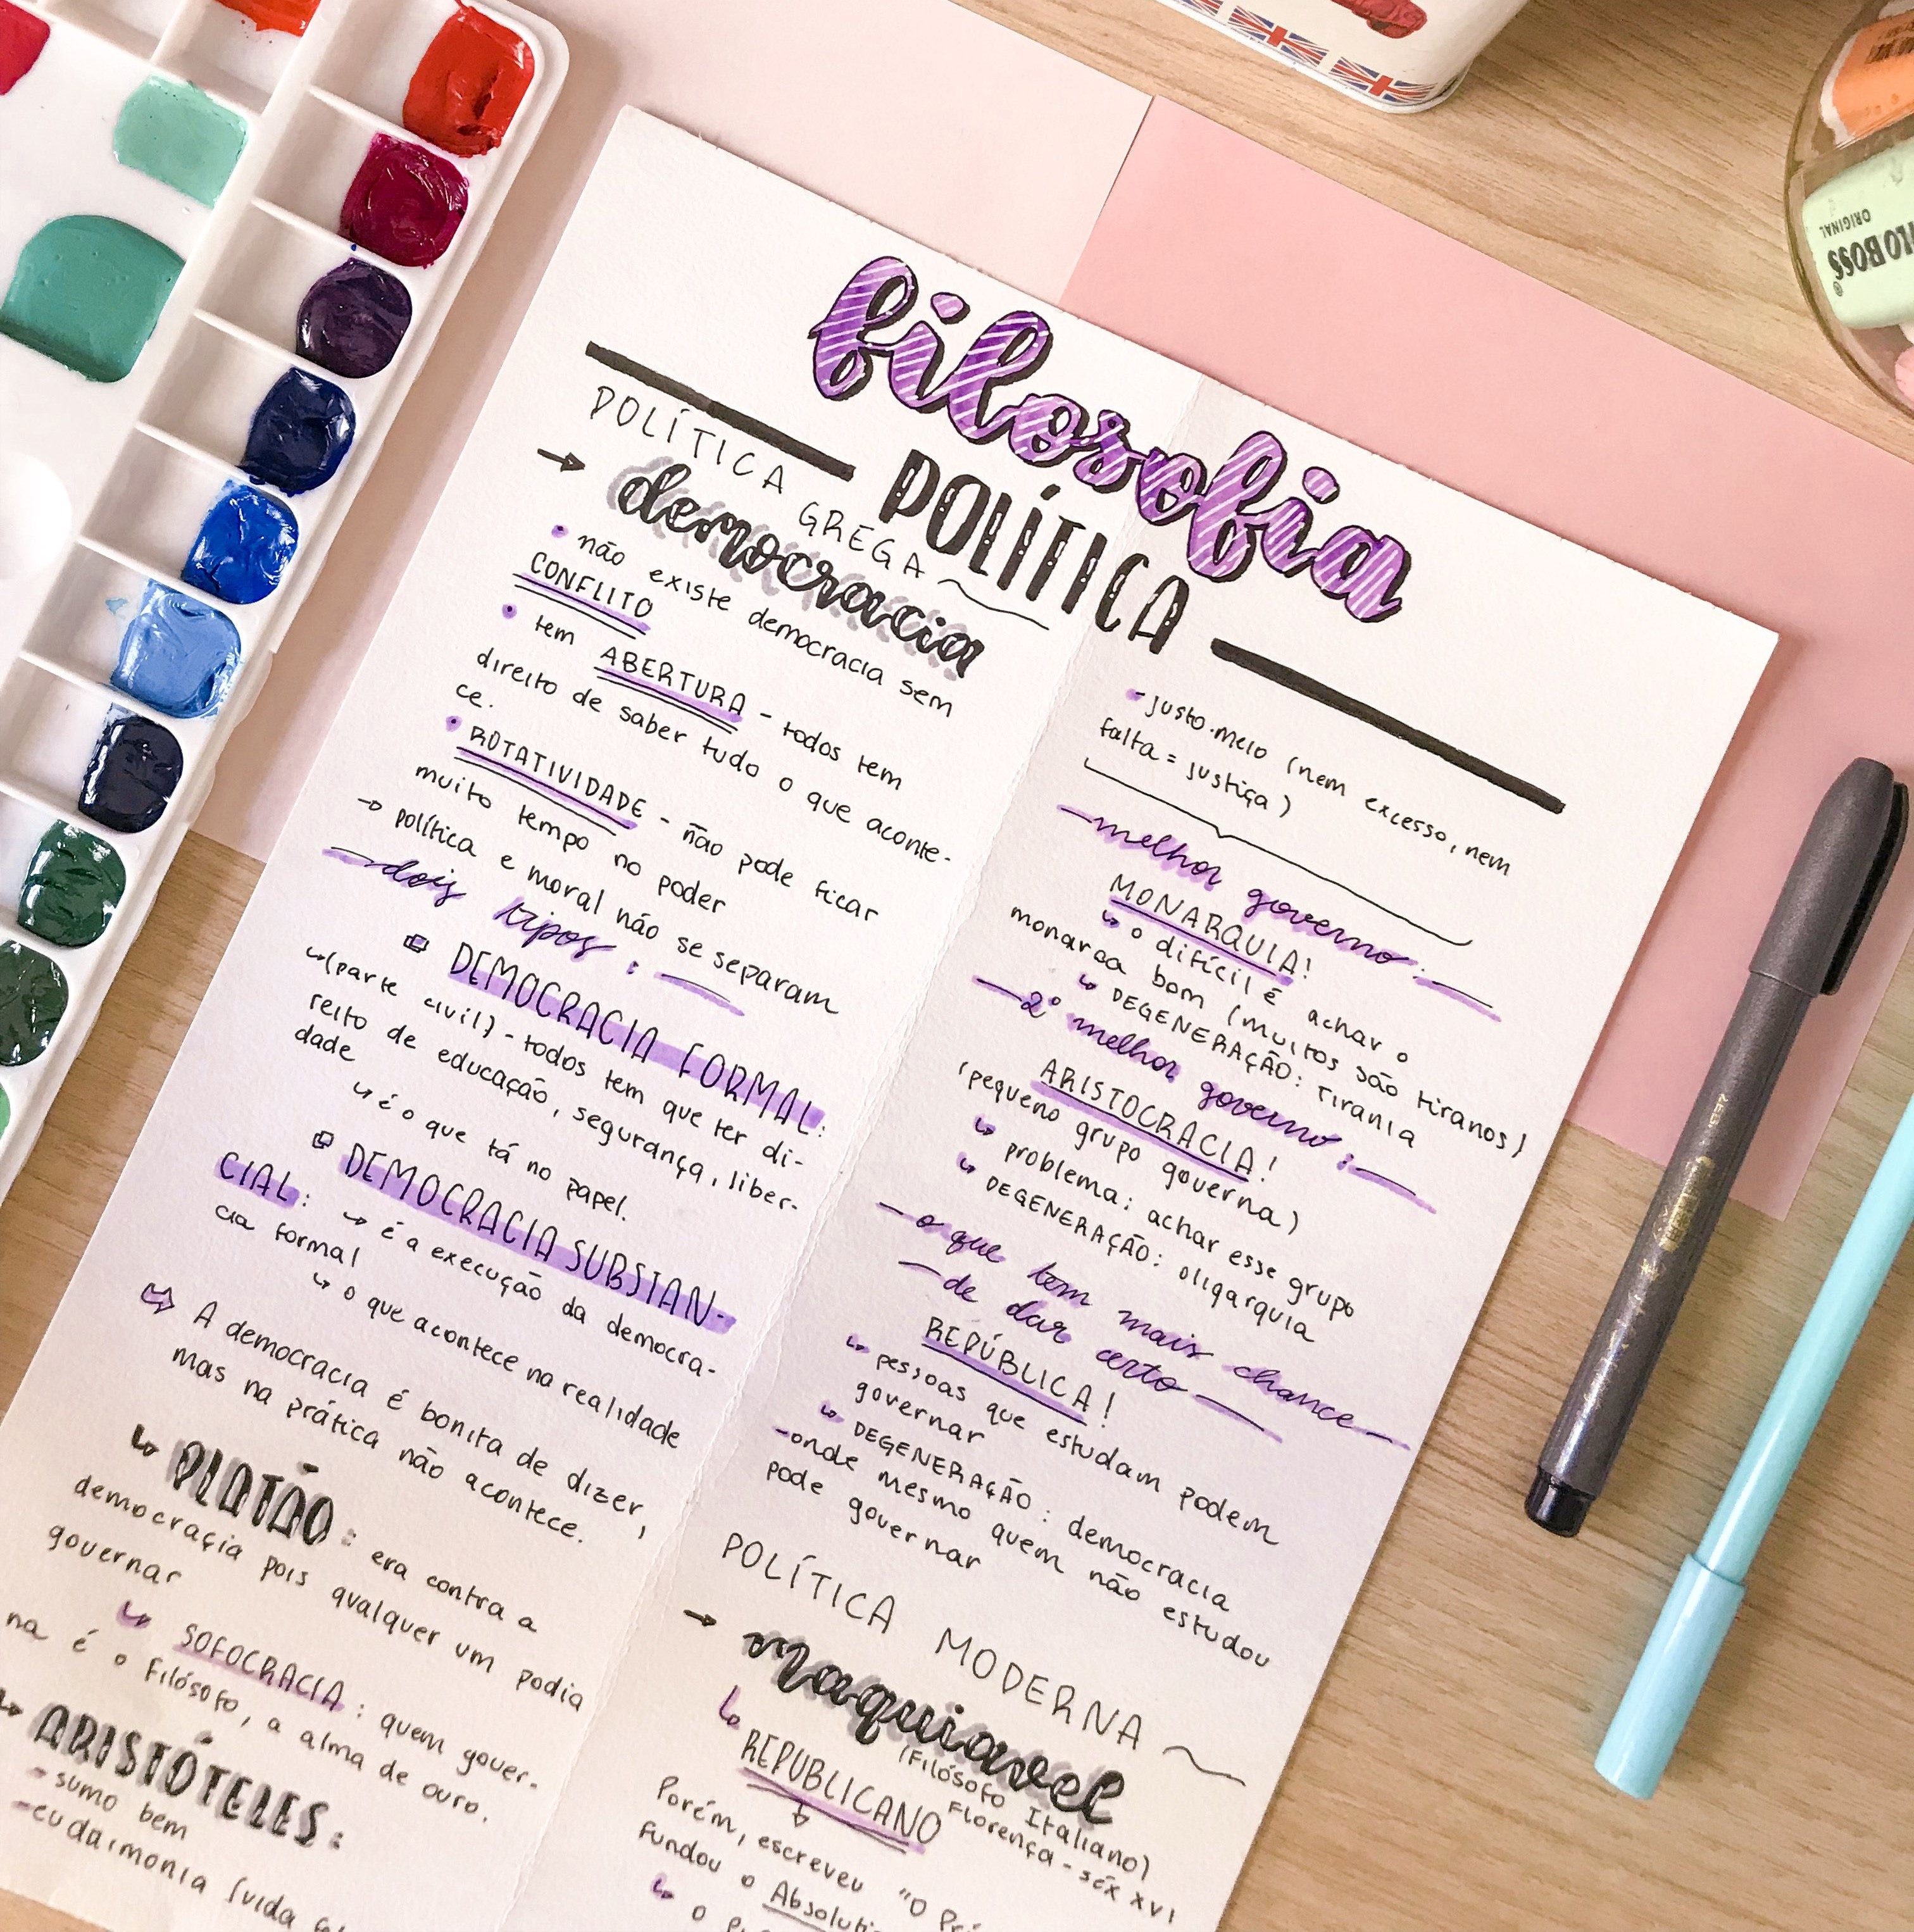 filosofia
POLÍTICA
POLÍTICA GREGA
→ democracia
• não existe democracia sem
CONFLITO
• tem ABERTURA - todos tem
direito de saber tudo o que aconte-
ce.
• ROTATIVIDADE - não pode ficar
muito tempo no poder
→ política e moral não se separam
dois tipos:
DEMOCRACIA FORMAL:
↳ (parte civil) - todos tem que ter di-
reito de educação, segurança, liber-
dade
↳ é o que tá no papel.
DEMOCRACIA SUBSTAN-
CIAL: ↳ é a execução da democra-
cia formal
↳ o que acontece na realidade
⇨ A democracia é bonita de dizer,
mas na prática não acontece.
↳ PLATÃO: era contra a
democraçia pois qualquer um podia
governar
↳ SOFOCRACIA: quem gover-
na é o filósofo, a alma de ouro.
↳ ARISTÓTELES:
- sumo bem
- eudaimonia (vida
- justo-meio (nem excesso, nem
falta = justiça)
melhor governo:
MONARQUIA!
↳ o difícil é achar o
monarca bom (muitos são tiranos)
↳ DEGENERAÇÃO: tirania
2º melhor governo:
ARISTOCRACIA!
(pequeno grupo governa)
↳ problema: achar esse grupo
↳ DEGENERAÇÃO: oligarquia
- o que tem mais chance -
- de dar certo -
REPÚBLICA!
↳ pessoas que estudam podem
governar
↳ DEGENERAÇÃO: democracia
- onde mesmo quem não estudou
pode governar
POLÍTICA MODERNA
→ maquiavel
(Filósofo Italiano)
Florença - séx XVI
↳ REPUBLICANO
Porém, escreveu "O
fundou o
↳ O
BOSS
ORIGINAL